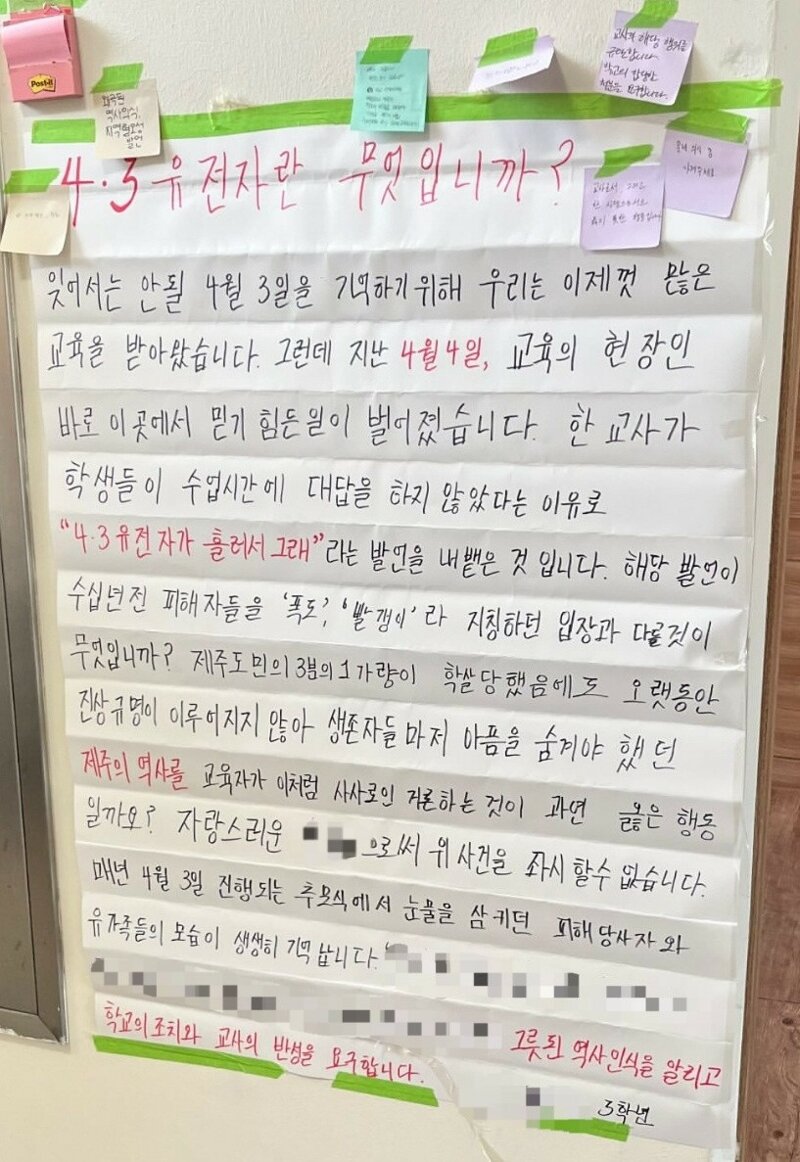 Post-it
왜곡된
역사의식,
지역혐오성
발언
교사의 해당 행위를
규탄합니다.
학교의 합당한
처분을 요구합니다.
4·3 유전자란 무엇입니까?
교사로서
잊어서는 안될 4월 3일을 기억하기 위해 우리는 이제껏 많은
교육을 받아왔습니다. 그런데 지난 4월4일, 교육의 현장인
바로 이곳에서 믿기 힘든일이 벌어졌습니다. 한 교사가
학생들이 수업시간에 대답을 하지 않았다는 이유로
“4·3 유전자가 흘러서 그래”라는 발언을 내뱉은 것 입니다. 해당 발언이
수십년전 피해자들을 '폭도', '빨갱이'라 지칭하던 입장과 다를것이
무엇입니까? 제주도민의 3분의 1 가량이 학살당했음에도 오랫동안
진상규명이 이루어지지 않아 생존자들마저 아픔을 숨겨야 했던
제주의 역사를 교육자가 이처럼 사사로인 거론하는 것이 과연 옳은 행동
일까요? 자랑스러운 으로써 위 사건을 좌시 할수 없습니다.
매년 4월 3일 진행되는 추모식에서 눈물을 삼키던 피해당사자와
유가족들의 모습이 생생히 기억 납니다.
그릇된 역사인식을 알리고
학교의 조치와 교사의 반성을 요구합니다.
3학년